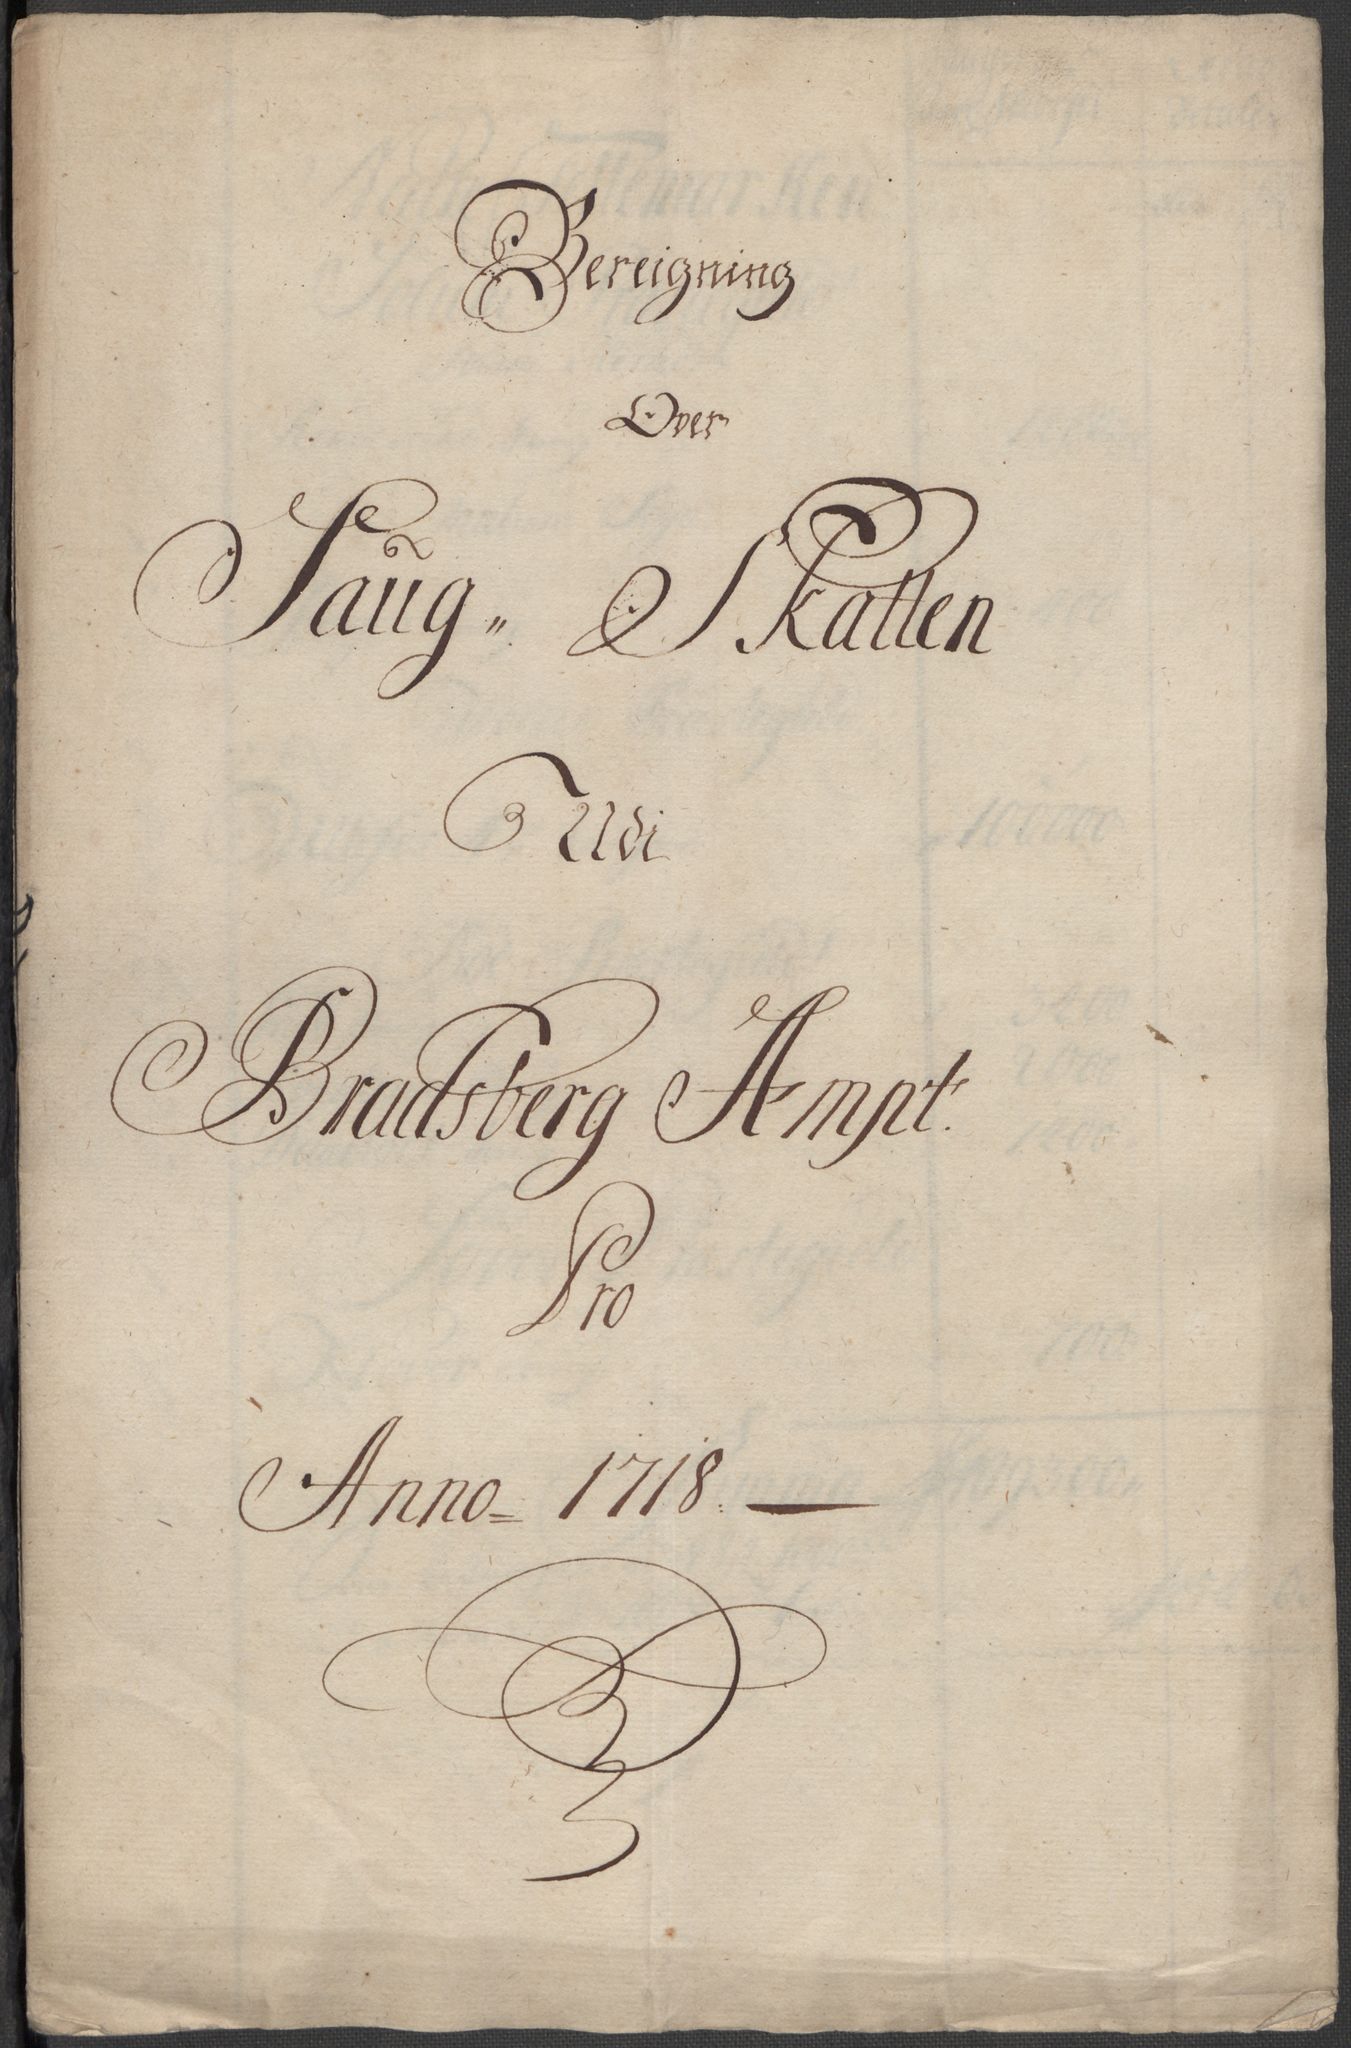 Bereigning
Over
Saug„ Skatten
Udi
Bradsberg Ampt.
Pro
Anno= 1718.